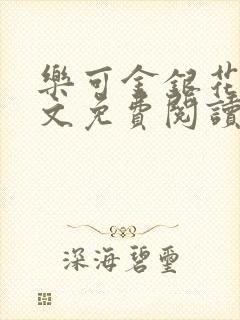 樂可金銀花
文免費閱讀
深海碧璽